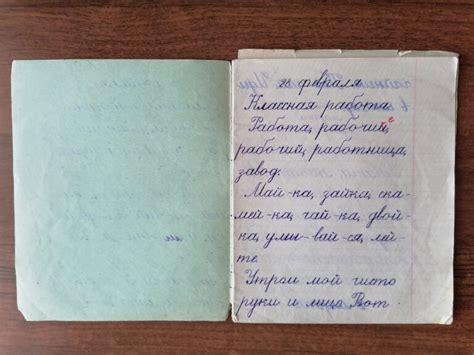 февраля
Классная работа.
Работа, рабочий, е
рабочий, работница,
завод.
Май-ка, зайка, ска-
мей-ка, гай-ка, двой-
ка, умы-вай-ся, лей-
те.
Утром мой чисто
руки и лицо. Вот